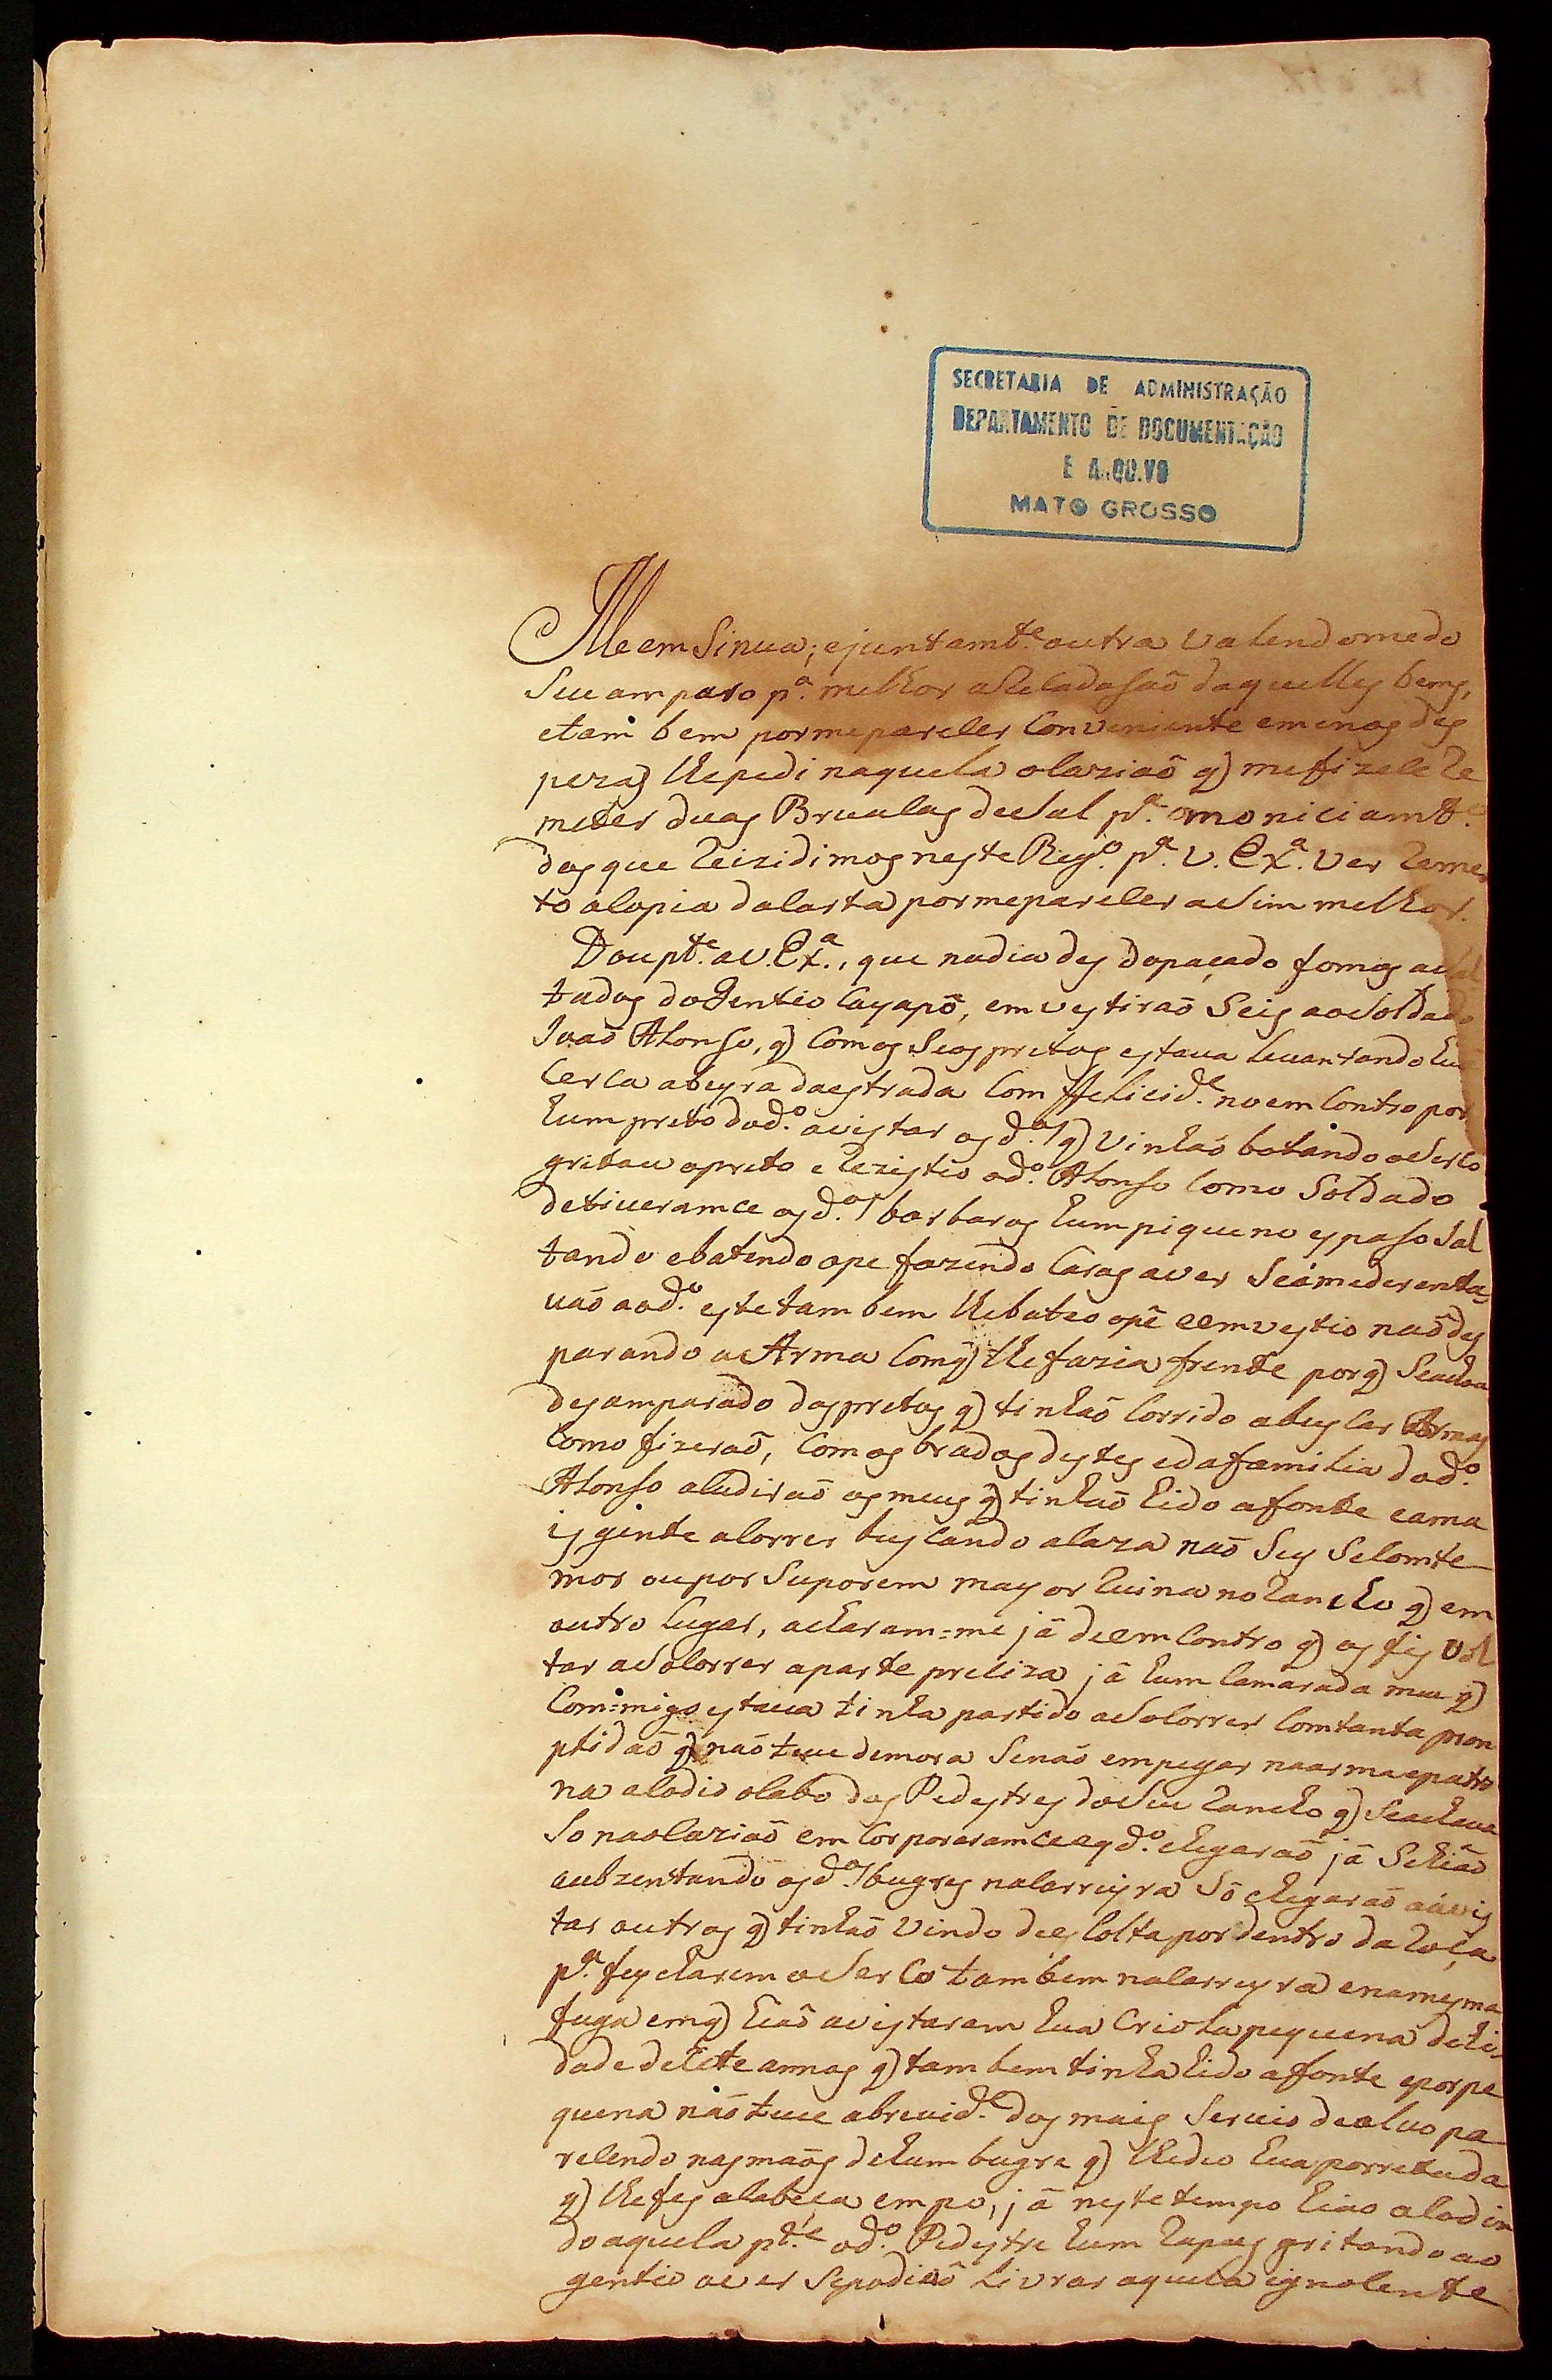 SECRETARIA DE ADMINISTRAÇÃO
DEPARTAMENTO DE DOCUMENTAÇÃO
E ARQUIVO
MATO GROSSO
Me em Sinua; ejuntamte. outra Valendomedo
Seu amparo pa. melhor aRecadasaõ daquelles bens,
etam bem pormepareser Conveniente emenos des
pezas lhepedi naquela ocaziaõ q mefizese Re
meter duas Bruacas deSal pa. o moniciamto.
dos que Reizidimos neste Rego. pa. V. Exa. ver Reme
to acopia dacarta pormepareser aSim melhor.
Doupte. aV. Exa., que nodia des dopaçado fomos asal
tados doGentio Cayapó, emvestiraõ Seis aoSoldado
Joaõ Afonso, q Comos Seos pretos estava levantando hu
Cerca abeyra daestrada Com ffelicide. noemContro por
hum preto dodo. avistar osdos. q Vinhaõ botando oSerco
gritou opreto e Rezistio odo. Afonso Como Soldado
detiveramce osdos. barbaros hum piqueno espaso Sal
tando ebatendo ope fazendo Caras aver Seamederenta
vaõ aodo. este tambem lhebateo opé eemvestio naõ des
parando aArma Comq lhefazia frente porq Seachava
desamparado dospretos q tinhaõ Corrido abuscar Armas
Como fizeraõ, Comos brados destes edafamilia dodo.
Afonso acudiraõ osmeus q tinhaõ hido afonte eama
is gente acorrer buscando acaza naõ Sey Secomte
mor oupor Suporem mayor Ruina noRancho q em
outro lugar, acharam=me já deemContro q os fis Vol
tar aSocorrer aparte preciza já hum Camarada meu q
Com=migo estava tinha partido aSocorrer Comtanta pron
ptidaõ q naõ teve demora Senaõ empegar naarma epatro
na acodio oCabo dos Pedestres doSeu Rancho q Seachava
So naocaziaõ emCorporaramce esdo. chegaraõ já Sehiaõ
aubzentando osdos. bugres nacarreyra Só chegaraõ aavis
tar outros q tinhaõ Vindo de Volta por dentro daRoça
pa. feycharem oSerco tambem nacarreyra enamesma
fuga emq hiaõ avistarem hua Criola pequena dehi
dade deSete annos q tambem tinha hido afonte eporpe
quena naõ teve abrevide. dos mais Servio dealvo pa
recendo nasmaõs dehum bugre q lhedeo hua porretada
q lhefes acabeça empo, já neste tempo hiao acodin
do aquela pte. odo. Pedestre hum Rapas gritando ao
gentio aver Sepodiaõ livrar aquela ignosente